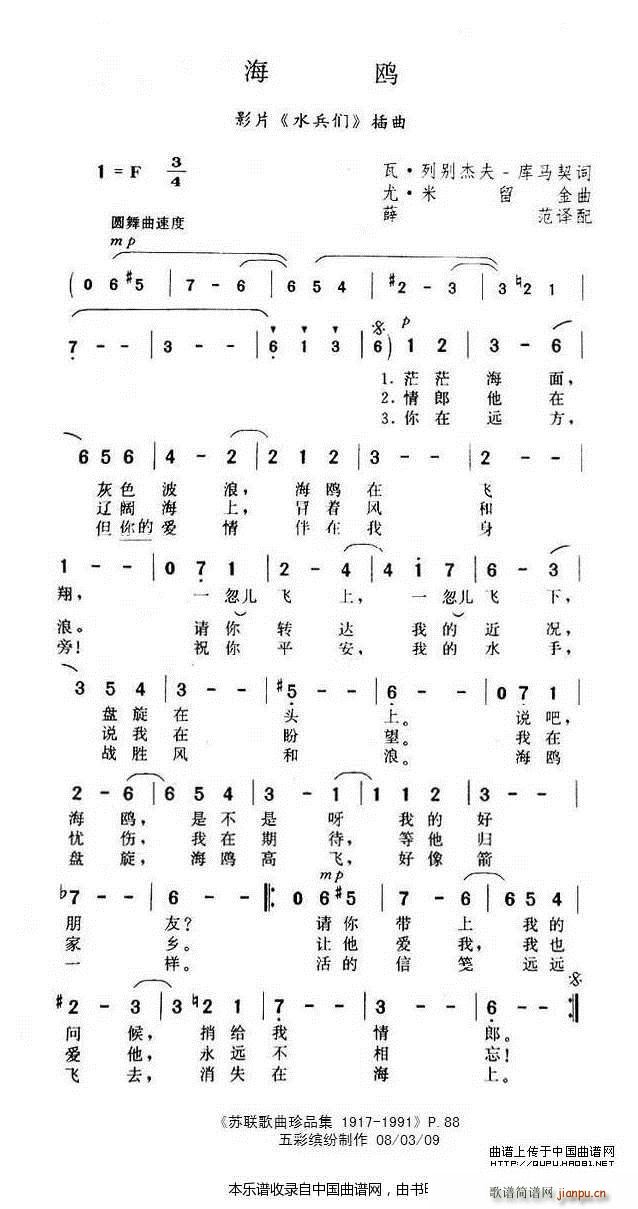 海 鸥
影片《水兵们》插曲
1 = F 3/4
瓦·列别杰夫-库马契词
尤·米留金曲
薛范译配
圆舞曲速度
mp
( 0 6 #5 | 7 - 6 | 6 5 4 | #2 - 3 | 3 ♮2 1 |
7 - - | 3 - - | 6 1 3 | 6 ) 1 2 | 3 - 6 |
p
1.茫茫海面,
2.情郎他在
3.你在远方,
6 5 6 | 4 - 2 | 2 1 2 | 3 - - | 2 - - |
灰色波浪, 海鸥在飞
辽阔海上, 冒着风和
但你的爱情 伴在我身
1 - - | 0 7 1 | 2 - 4 | 4 1 7 | 6 - 3 |
翔, 一忽儿飞上, 一忽儿飞下,
浪。 请你转达 我的近况,
旁! 祝你平安, 我的水手,
3 5 4 | 3 - - | #5 - - | 6 - - | 0 7 1 |
盘旋在头上。 说吧,
说我在盼望。 我在
战胜风和浪。 海鸥
2 - 6 | 6 5 4 | 3 - 1 | 1 1 2 | 3 - - |
海鸥, 是不是呀 我的好
忧伤, 我在期待, 等他归
盘旋, 海鸥高飞, 好像箭
mp
♭7 - - | 6 - - |: 0 6 #5 | 7 - 6 | 6 5 4 |
朋友? 请你带上 我的
家乡。 让他爱我, 我也
一样。 活的信笺 远远
#2 - 3 | 3 ♮2 1 | 7 - - | 3 - - | 6 - - :|
问候, 捎给我情郎。
爱他, 永远不相忘!
飞去, 消失在海上。
《苏联歌曲珍品集 1917-1991》P.88
五彩缤纷制作 08/03/09
曲谱上传于中国曲谱网
http://QUPU.HAO81.NET
本乐谱收录自中国曲谱网,由书
歌谱简谱网
jianpu.cn